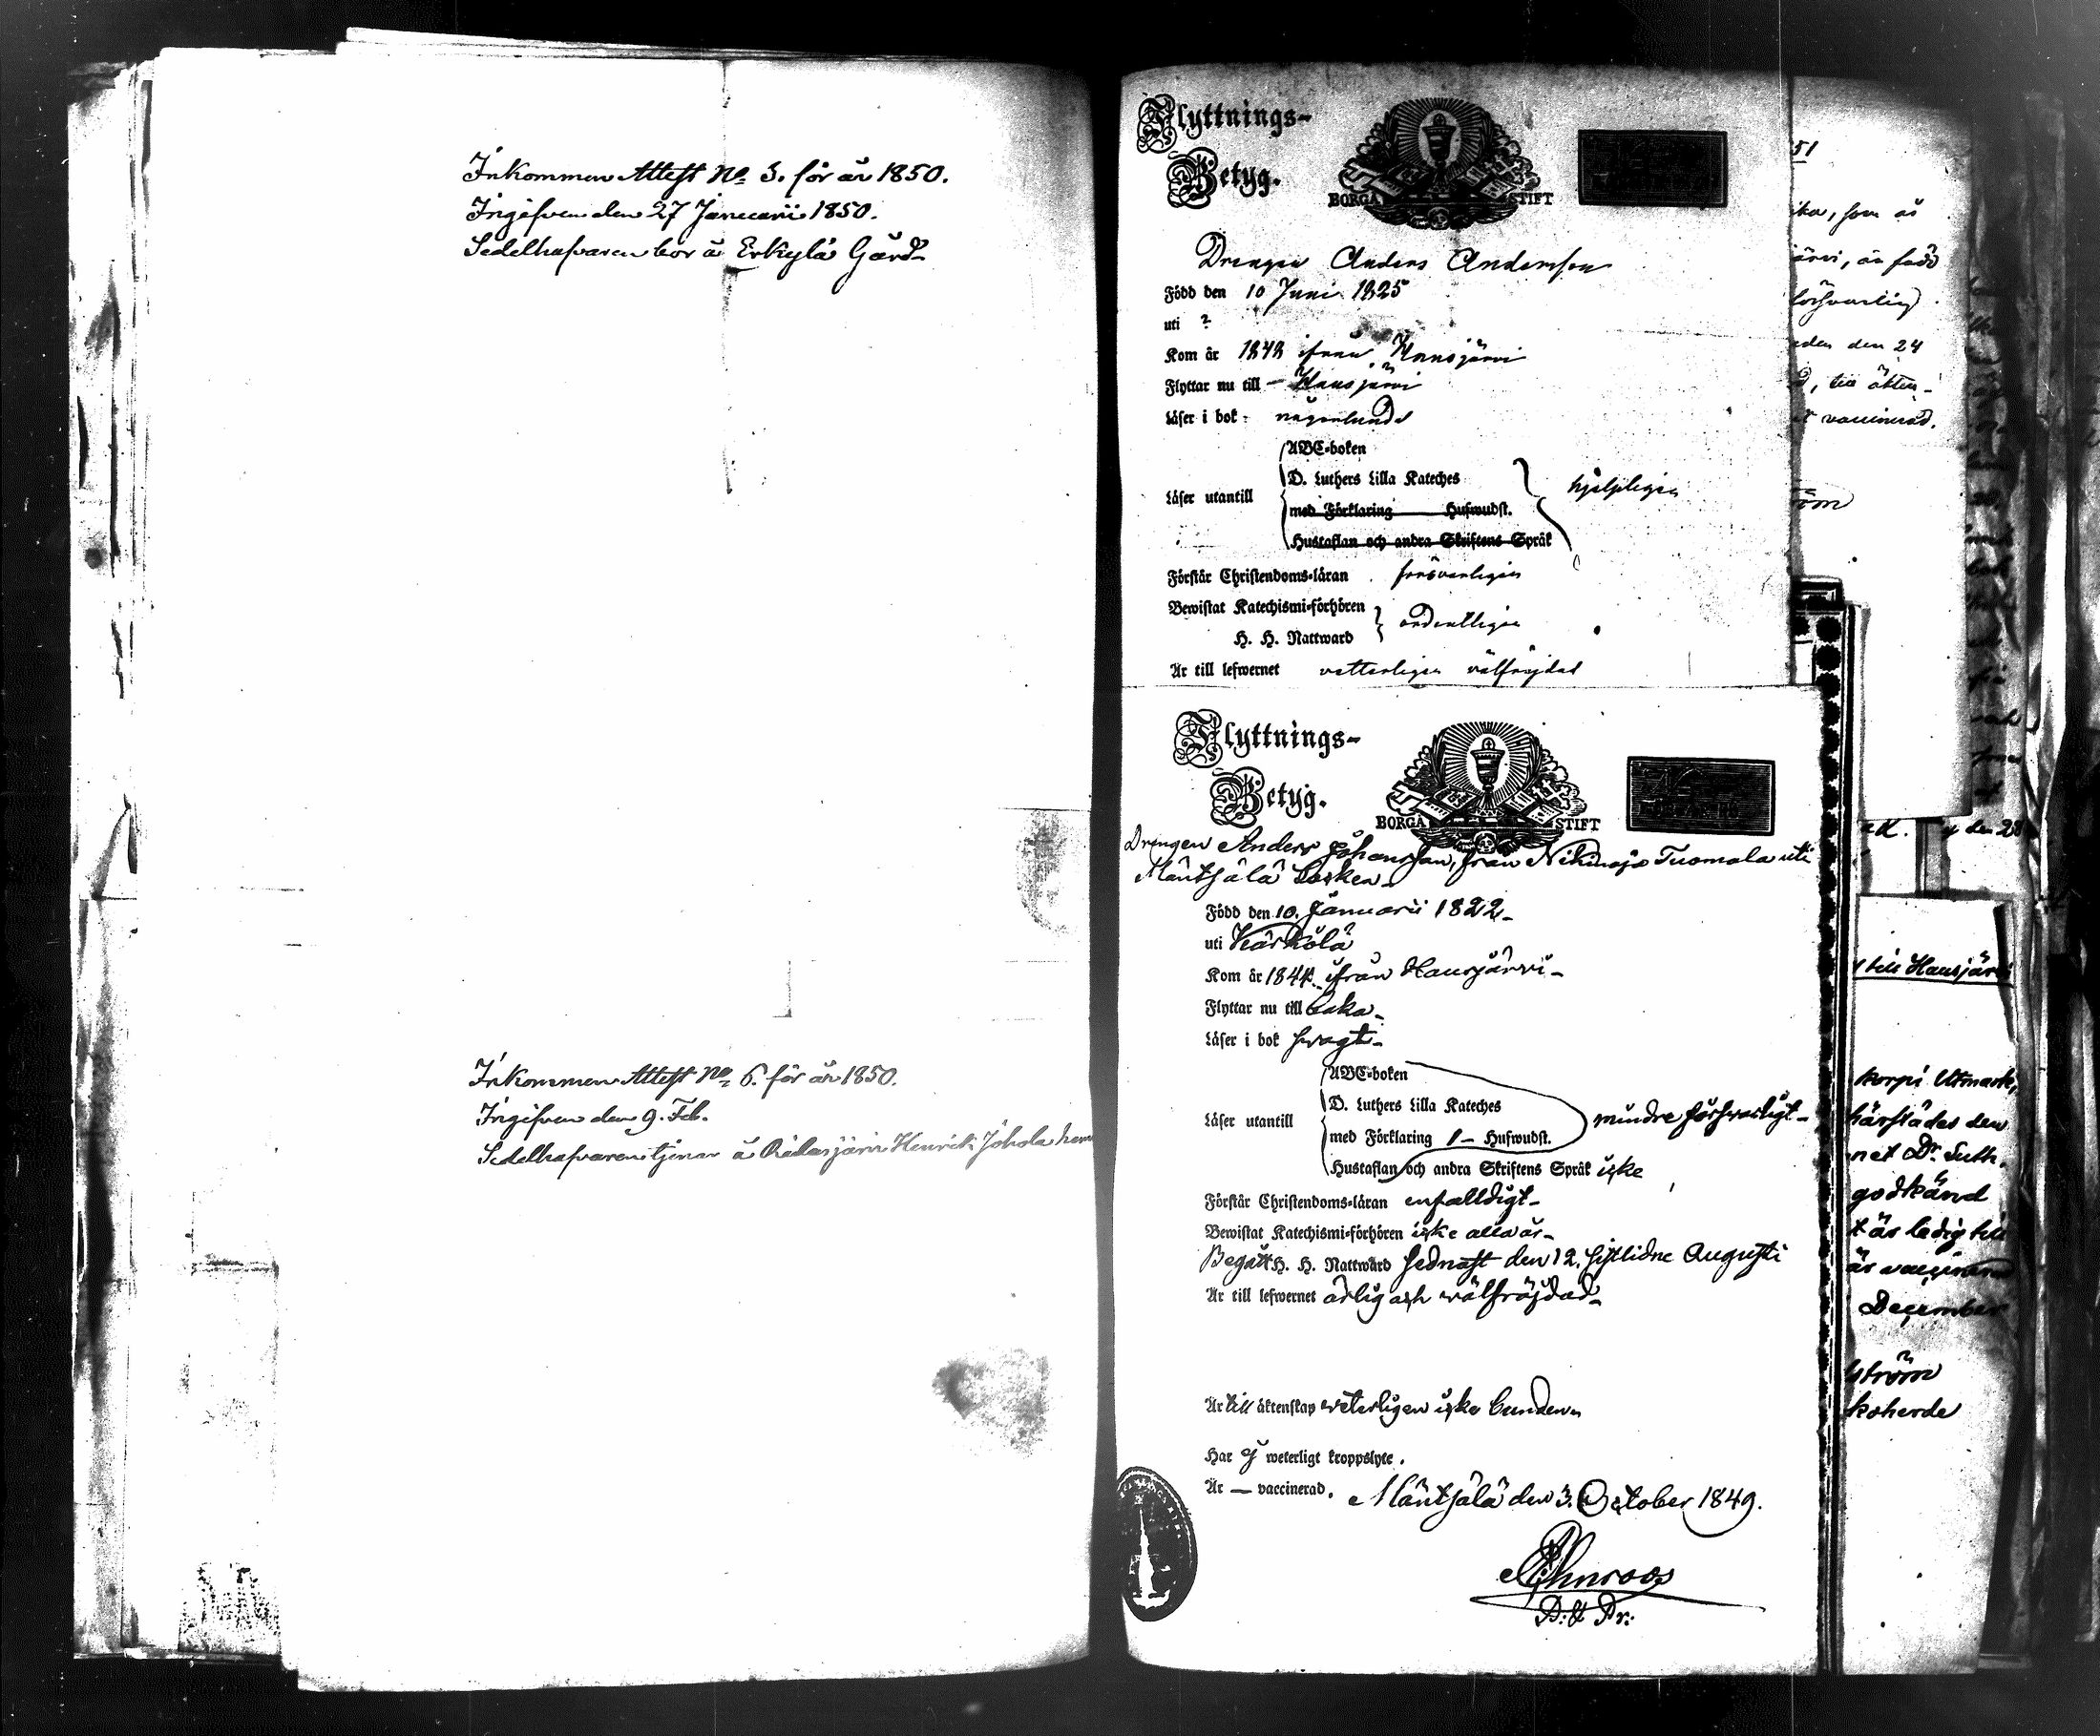 Inkommen Attest No 3. för år 1850.
Ingifven den 27 Januarii 1850.
Sedelhafvaren bor å Erkylä Gård.
Inkommen Attest No 6. för år 1850.
Ingifven den 9. Feb.
Sedelhafvaren tjenar å Ridasjärvi Henrik Johola hem
Flyttnings-
Betyg.
BORGÅ STIFT
Drengen Anders Andersson
Född den 10 Juni 1825
uti ?
Kom år 1848 ifrån Hausjärvi
Flyttar nu till - Hausjärvi
Läser i bok - någorlunda
Läser utantill
ABC-boken
D. Luthers Lilla Kateches
med Förklaring Hufwudst.
Hustaflan och andra Skriftens Språk
hjelpligen
Förstår Christendoms-läran försvarligen
Bewistat Katechismi-förhören
H. H. Nattward
ordentligen
Är till lefwernet vetterligen välfrejdad
Flyttnings-
Betyg.
BORGÅ STIFT
Drengen Anders Johansson, från Nikinoja Tuomala uti
Mäntsälä Socken
Född den 10. Januarii 1822
uti Kärkölä
Kom år 1844 ifrån Hausjärvi
Flyttar nu till baka
Läser i bok svagt
Läser utantill
ABC-boken
D. Luthers Lilla Kateches
med Förklaring 1 Hufwudst.
Hustaflan och andra Skriftens Språk icke
mindre försvarligt
Förstår Christendoms-läran enfalldigt
Bewistat Katechismi-förhören icke alla år
Begått H. H. Nattward sednast den 12. sistlidne Augusti
Är till lefwernet ärlig och välfräjdad
Är till äktenskap veterligen icke bunden
Har ej weterligt kroppslyte.
Är — vaccinerad.
Mäntsälä den 3. October 1849.
51
den den 24
vaccinerad.
till Hausjärvi
korpi Utmark,
härstädes den
godkänd
är ledig till
är vaccinerad
December
ström
koherde